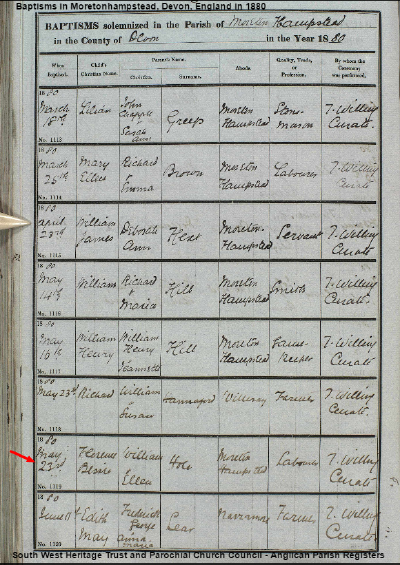 Baptisms in Moretonhampstead, Devon, England in 1880
BAPTISMS solemnized in the Parish of Moreton Hampstead
in the County of Devon in the Year 1880
When Baptized. Child's Christian Name. Parent's Name. Abode. Quality, Trade, or Profession. By whom the Ceremony was performed.
Christian. Surname.
1880 March 18th No. 1113 Lilian John & Sarah Ann Greep Moreton Hampstead Stone Mason T. Willing Curate.
1880 March 25th No. 1114 Mary Ellen Richard & Emma Brown Moreton Hampstead Labourer T. Willing Curate
1880 April 23rd No. 1115 William James Deborah Ann Hext Moreton Hampstead Servant T. Willing Curate
1880 May 14th No. 1116 William Richard Maria Hill Moreton Hampstead Smith T. Willing Curate.
1880 May 16th No. 1117 William Henry William Henry Hill Moreton Hampstead Keeper T. Willing Curate
1880 May 23rd No. 1118 Richard William & Susan Farmer T. Willing Curate.
1880 May 23rd No. 1119 Florence William & Ellen Hole Moreton Hampstead Labourer T. Willing Curate.
1880 June No. 1120 Edith May Frederick George Anna Maria Lear Farmer T. Willing Curate
South West Heritage Trust and Parochial Church Council - Anglican Parish Registers